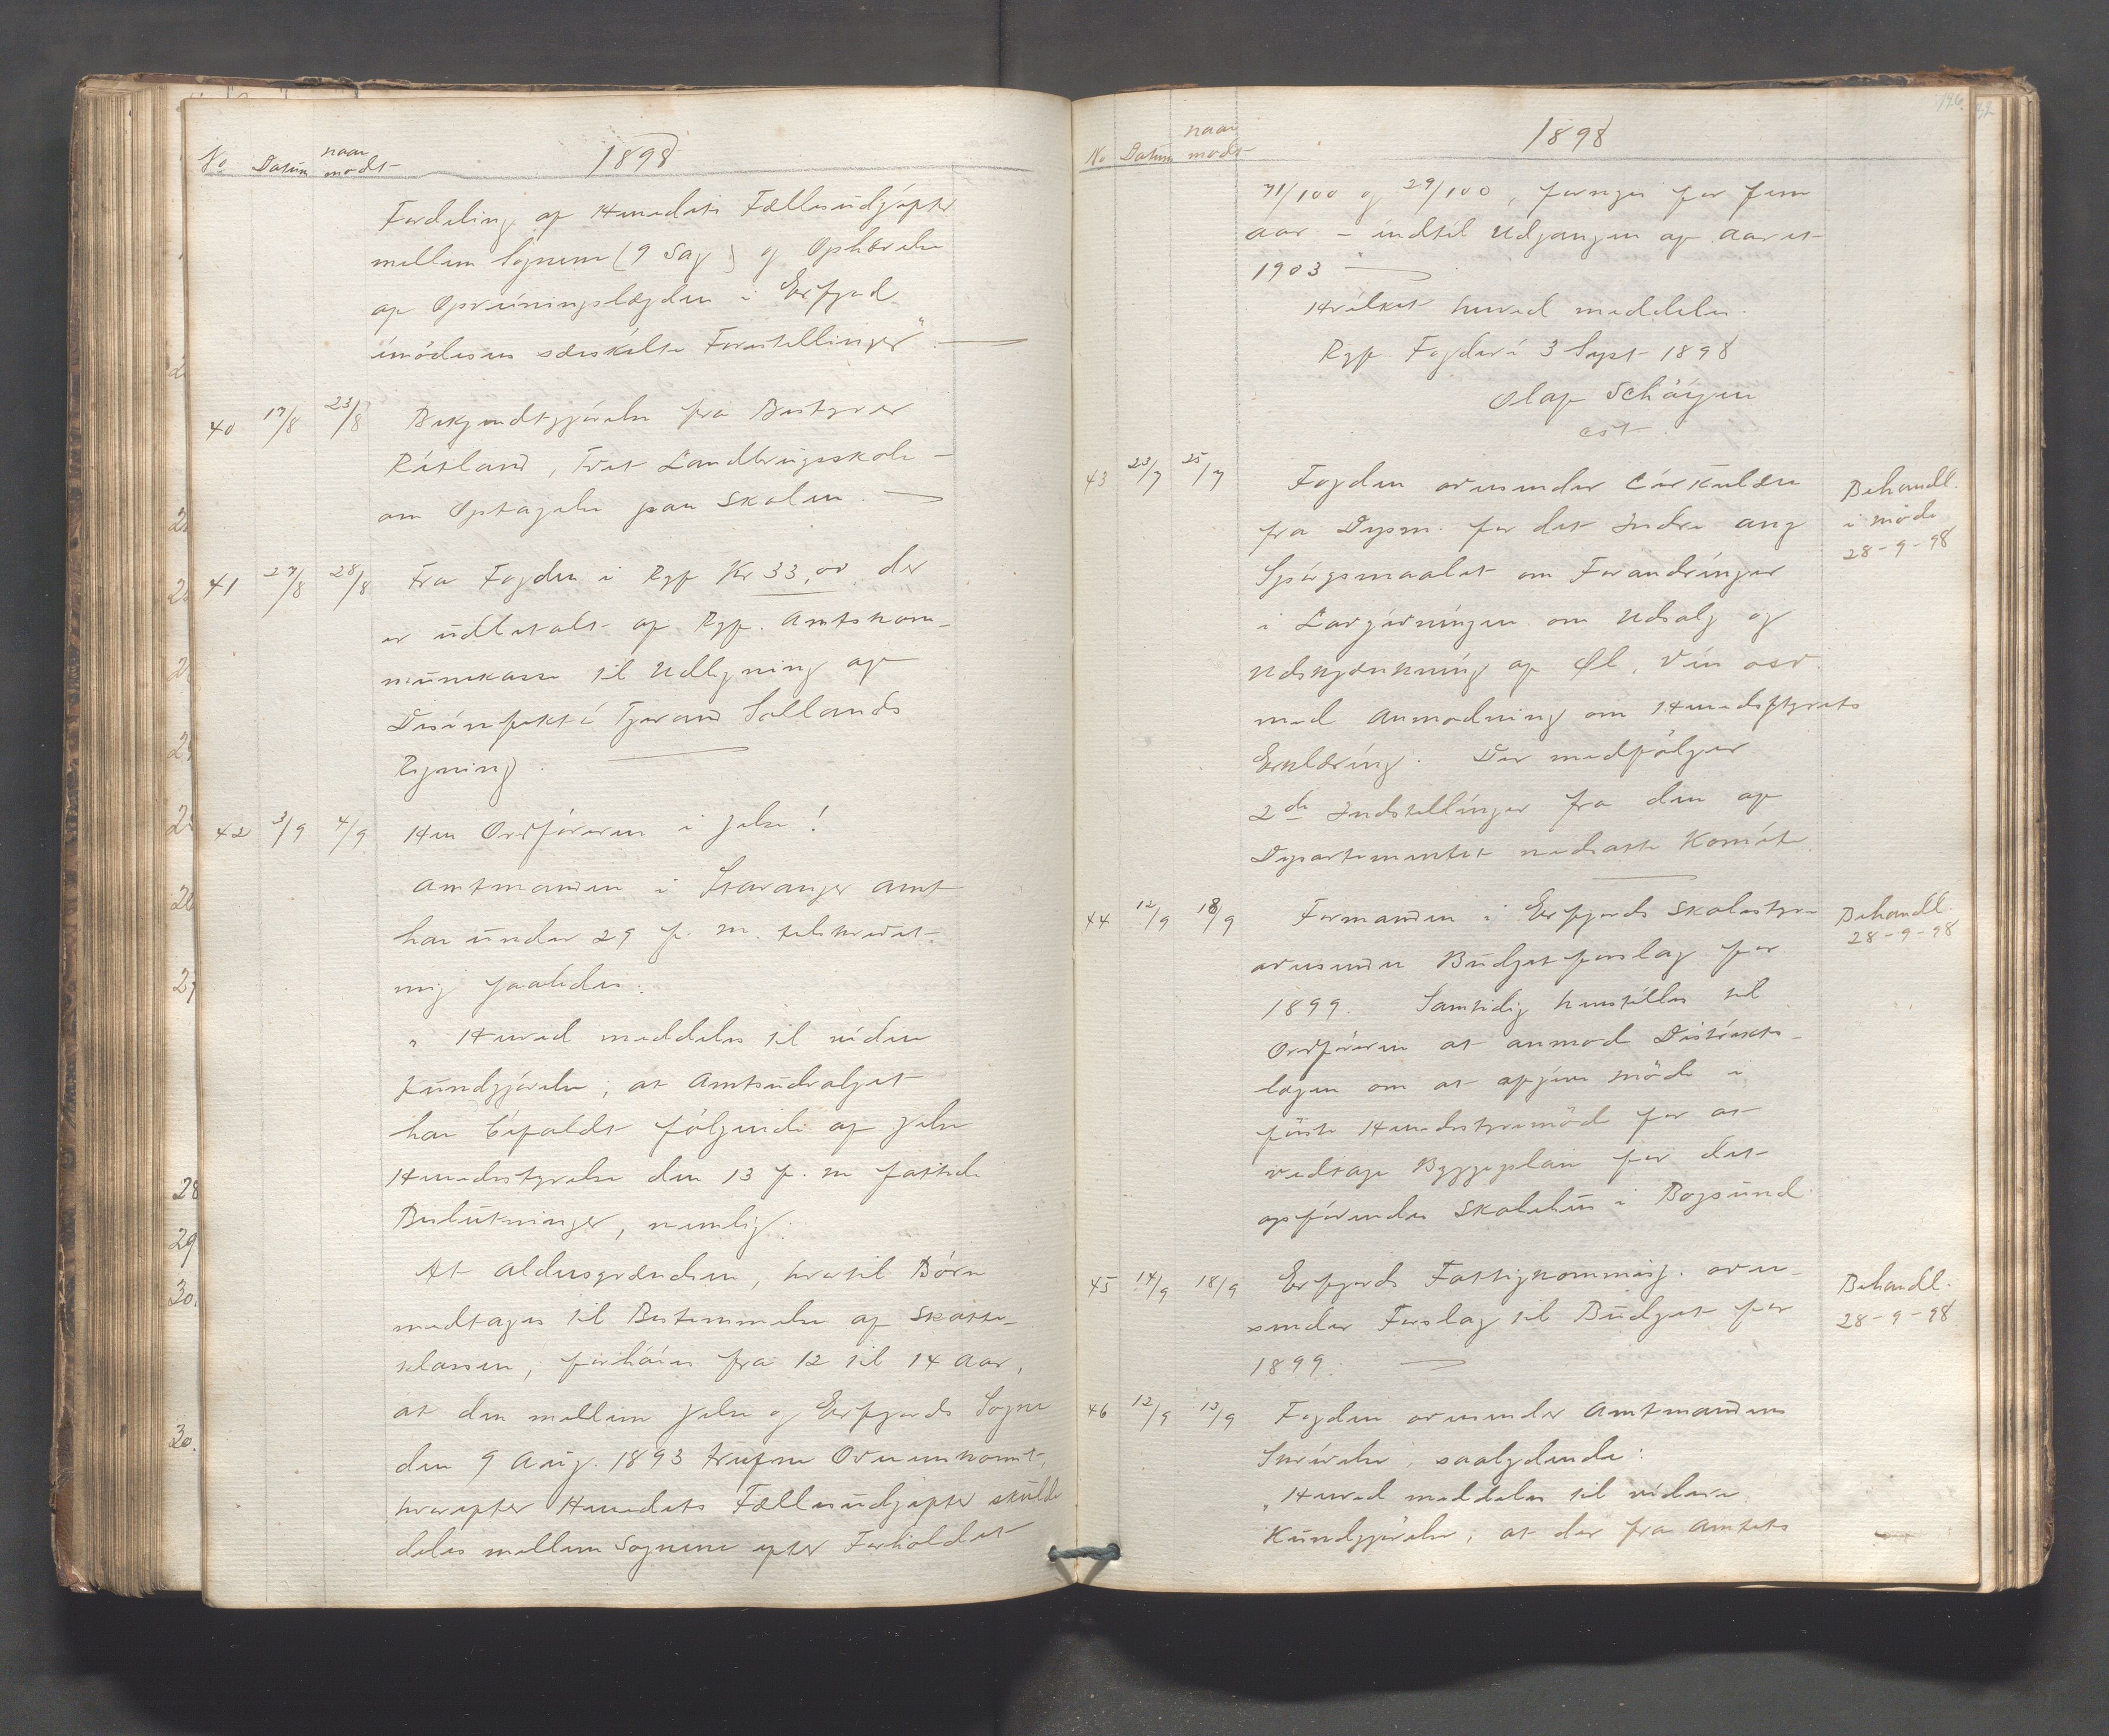 1898
No Datum naar modt
Fordeling af Herredets Fællesudgifter
mellem Sognene (9 Sag) og Ophævelse
af Oprúningslægden i Erfjord
imødesees særskilte Forestillinger". —
40 17/8 23/8 Bekjendtgjørelse fra Bestyrer
Retland, Tveit Landbrugsskole –
om Optagelse paa Skolen. —
41 27/8 28/8 Fra Fogden i Ryf Kr 33,00 der
er udbetalt af Ryf. Amtskom-
munekasse til Udligning af
Desinfektør Tjerand Sollands
Regning.
42 3/9 4/9 Herr Ordføreren i Jelse!
Amtmanden i Stavanger Amt
har under 29 f. M. tilskrevet
mig saaledes:
" Herved meddeles til videre
Kundgjørelse, at Amtsudvalget
har bifaldt følgende af Jelse
Herredsstyrelse den 13 f. M fattede
Beslutninger, nemlig:
At Aldersgrændsen, hvortil Børn
medtages til Bestemmelse af Skatte-
klassen, forhøies fra 12 til 14 Aar,
at den mellem Jelse og Erfjords Sogne
den 9 Aug. 1893 trufne Overenskomst,
hvorefter Herredets Fællesudgifter skulde
deles mellem Sognene efter Forholdet
1898
No Datum naar modt
71/100 og 29/100, fornyes for fem
Aar – indtil Udgangen af Aaret
1903 —
Hvilket herved meddeles.
Ryf. Fogderi 3 Sept 1898
Olaf Schöigen
cst.
43 23/7 25/7 Fogden oversender Cirkulære
fra Depm. for det Indre ang
Spørgsmaalet om Forandringer
i Lovgivningen om Udsalg og
Udskjænkning af Øl, Vin osv.
med Anmodning om Herredsstyrets
Erklæring. Der medfølger
2de Indstillinger fra den af
Departementet nedsatte Komite.
Behandl.
i møde
28-9-98
44 12/9 18/9 Formanden i Erfjords Skolestyre
oversender Budgetforslag for
1899. Samtidig henstilles til
Ordføreren at anmode Distrikts-
lægen om at afgive møde i
første Herredsstyremøde for at
vedtage Byggeplan for det
opførendes Skolehus i Bogsund.
Behandl.
28-9-98
45 14/9 18/9 Erfjords Fattigkommisj. over-
sender Forslag til Budget for
1899. —
Behandl.
28-9-98
46 12/9 13/9 Fogden oversender Amtmandens
Skrivelse, saalydende:
" Herved meddeles til videre
Kundgjørelse, at der fra Amtets